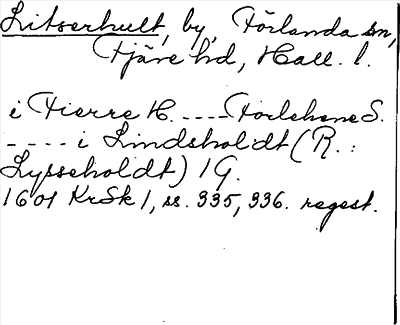 Litserhult, by, Förlanda sn,
Fjäre hd, Hall. l.
i Fierre H. ---- Forlehne S.
---- i Lindsholdt (R.:
Lysseholdt) 1 G.
1601 KrSk 1, ss. 335, 336. regest.